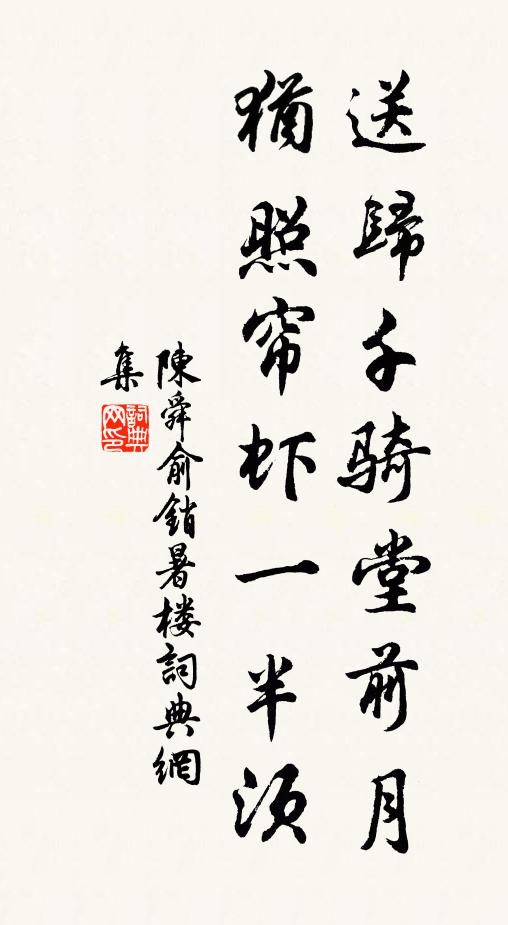 送歸千騎堂前月
猶照帘虾一半須
陳舜俞銷暑楼詞典網
集
詞典网印